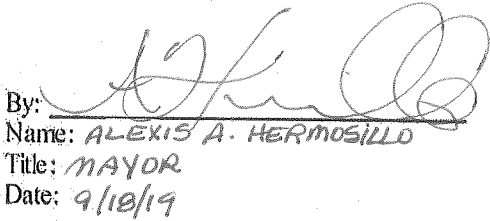 By:
Name: ALEXIS A. HERMOSILLO
Title: MAYOR
Date: 9/18/19